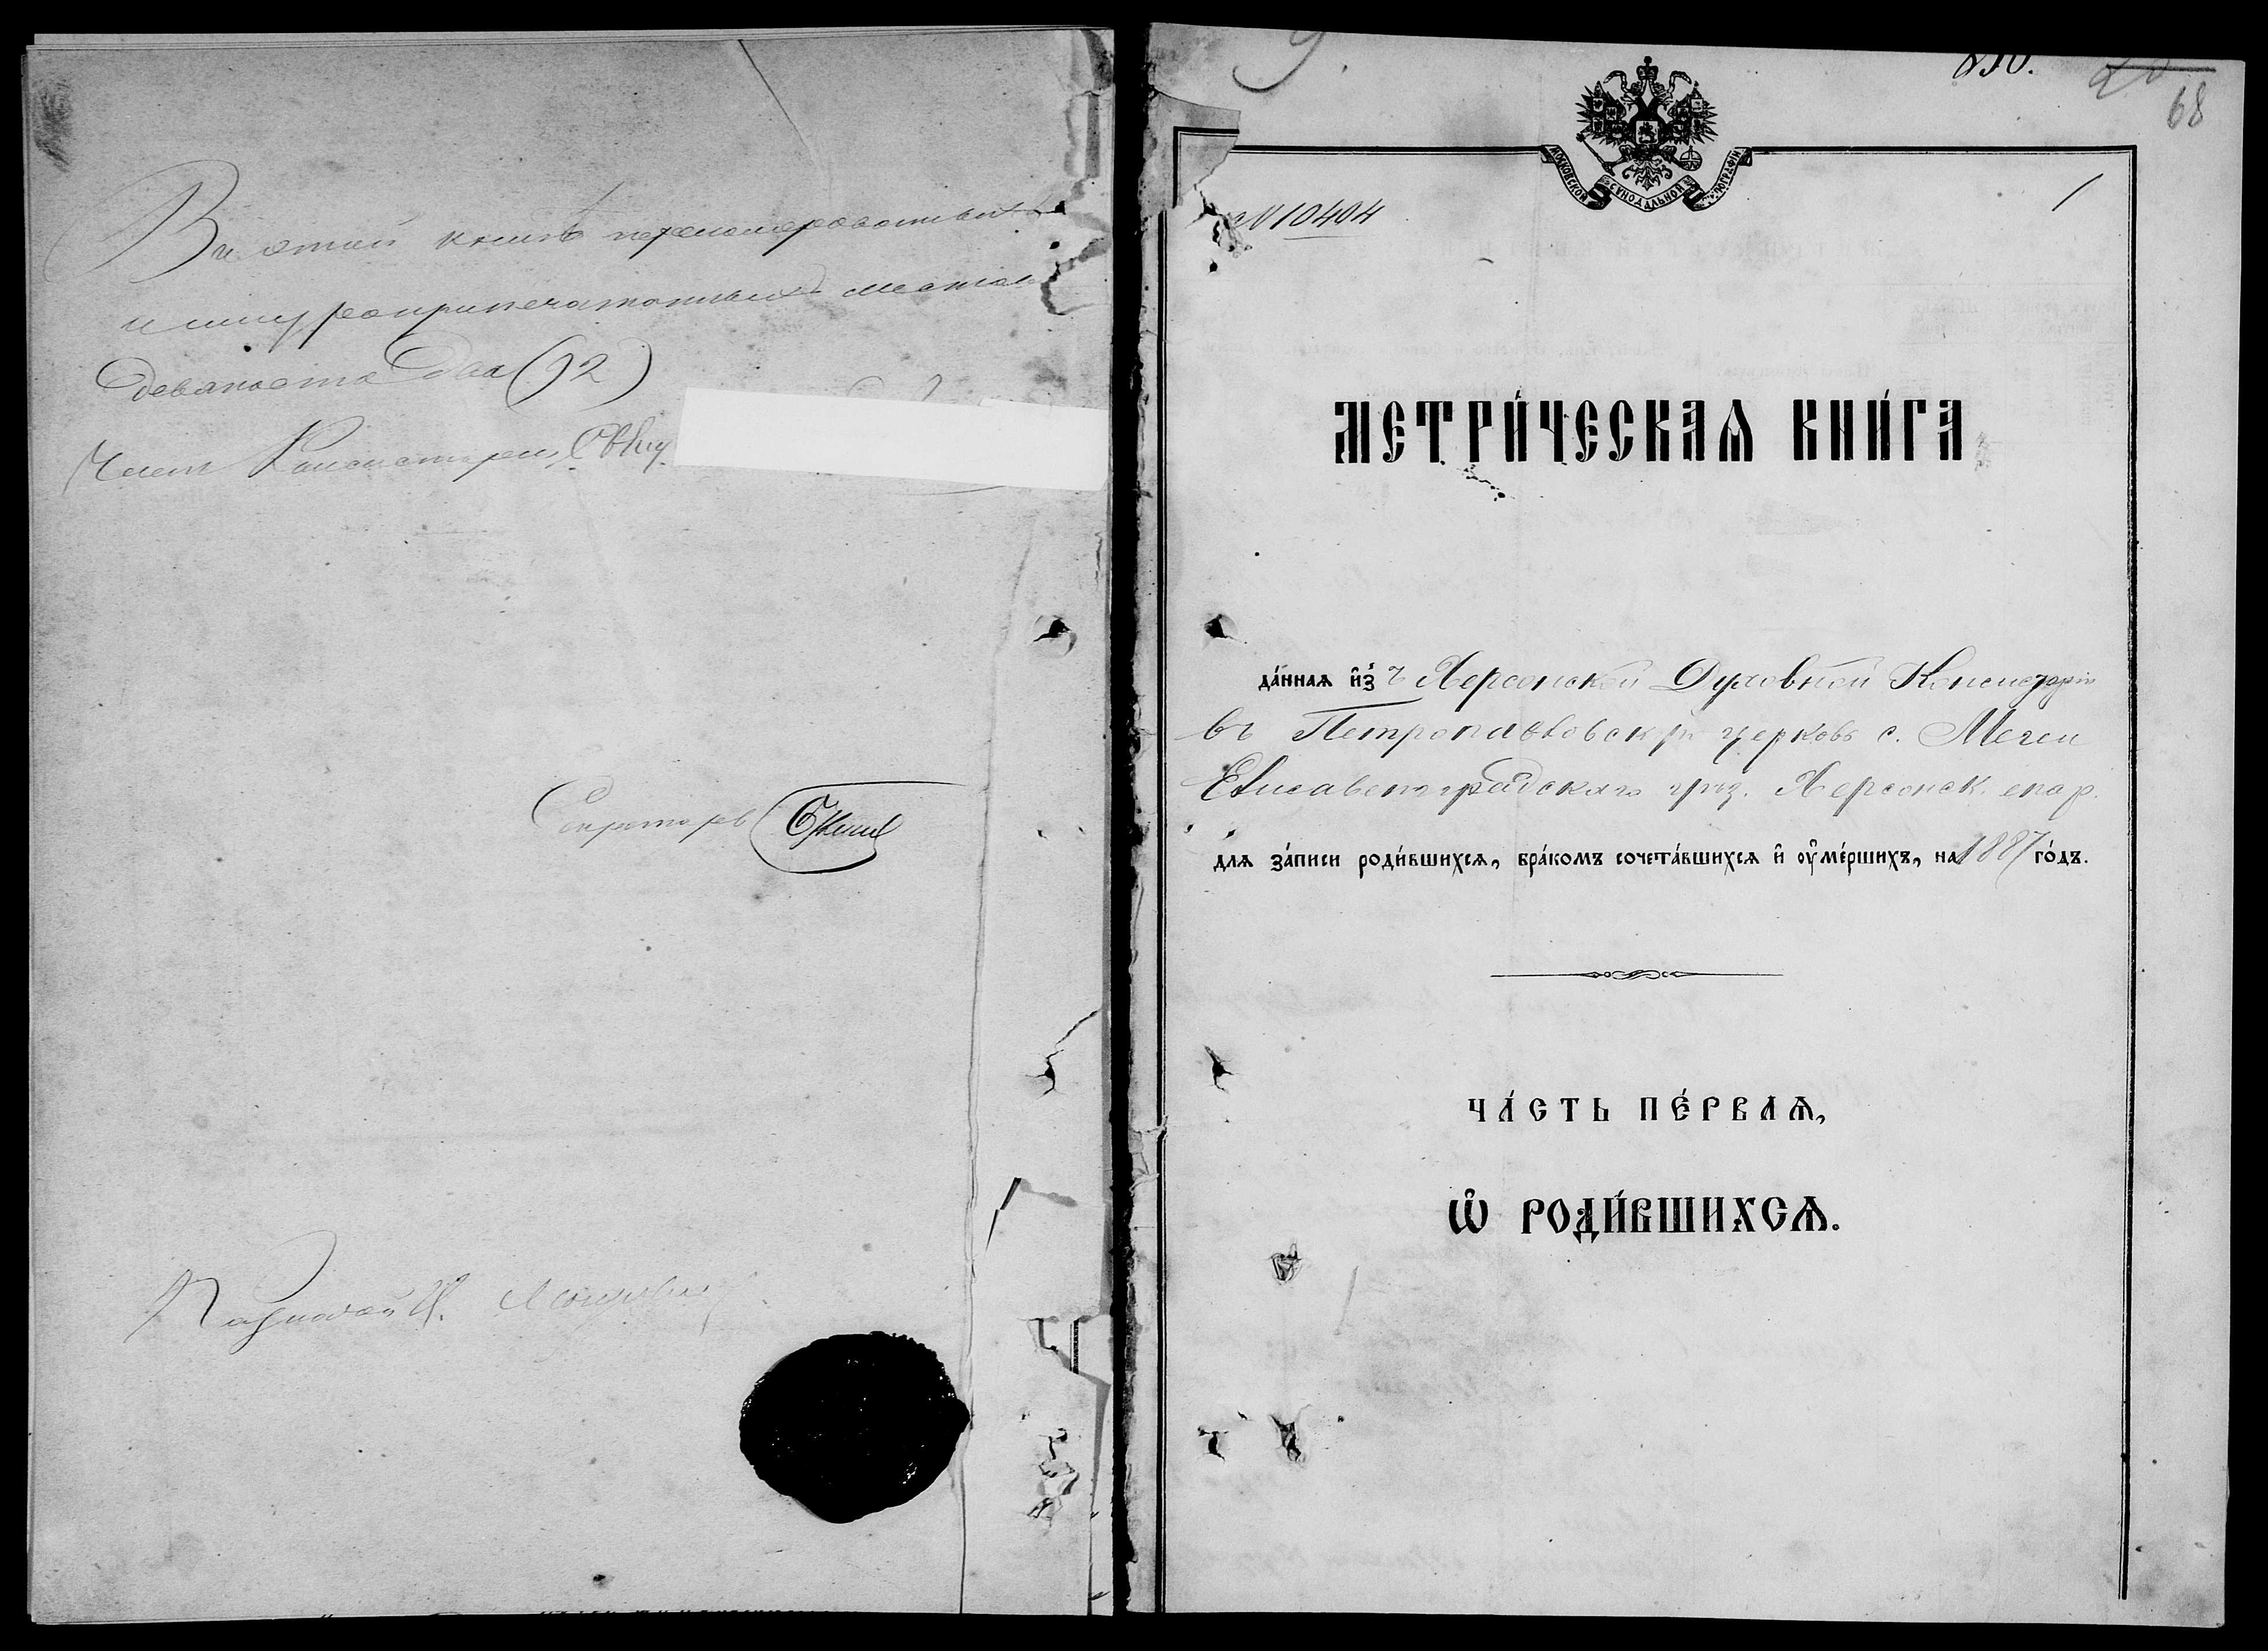 Въ этой книгѣ перенумерованныхъ
и шнуроприпечатанныхъ листовъ
девяносто два (92)
Членъ Консисторіи, Свящ.
Секретарь
9.
830.
20
68
МОСКОВСКОЙ СѴНОДАЛЬНОЙ ТѴПОГРАФІИ
1
№ 10404
МЕТРИ́ЧЕСКАѦ КНИ́ГА
да́ннаѧ и҆з̾ ъ Херсонской Духовной Консисторіи
въ Петропавловскую церковь с. Мечеи
Елисаветградскаго уѣз. Херсонск. епар.
длѧ за́писи роди́вшихсѧ, бра́комъ сочета́вшихсѧ и҆ ѹ҆ме́ршихъ, на 1887 го́дъ.
ЧА́СТЬ ПЕ́РВАѦ,
Ѡ҆ РОДИ́ВШИХСѦ.